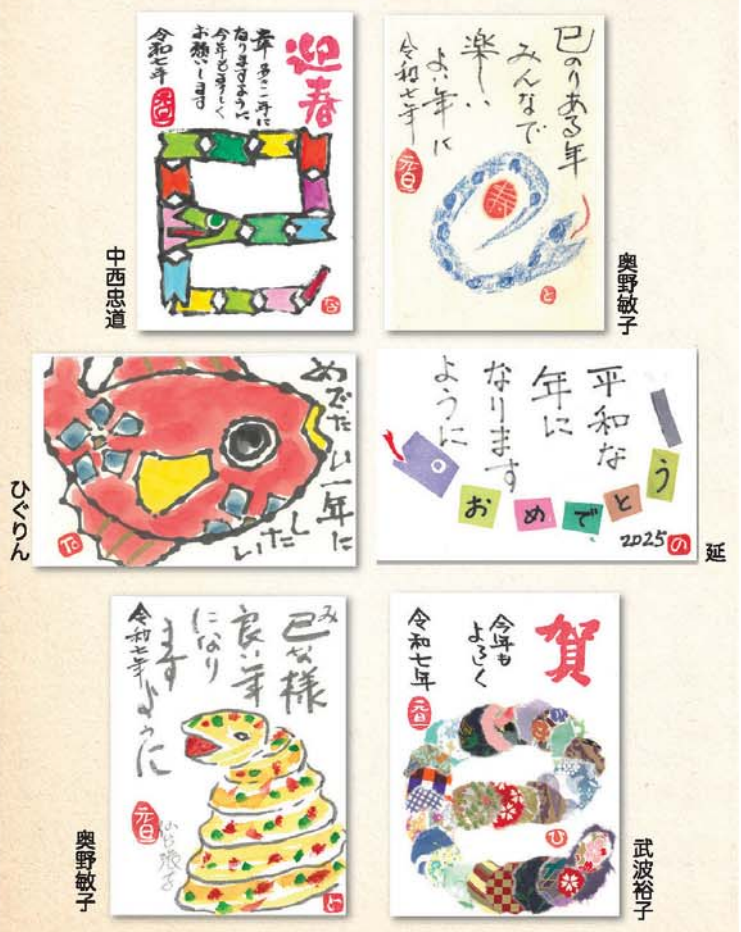 迎春
幸多い年に
なりますように
今年もよろしく
お願いします
令和七年
な
中西忠道
巳のりある年
みんなで
楽しい
よい年に
令和七年
元旦
寿
と
奥野敏子
めでたい一年に
いたし
ひぐりん
平和な
年に
なります
ように
おめでとう
2025
の
延
み
巳な様
良い年
になり
ます
ように
令和七年
元旦
仙台張子
と
奥野敏子
賀
今年も
よろしく
令和七年
元旦
ひ
武波裕子